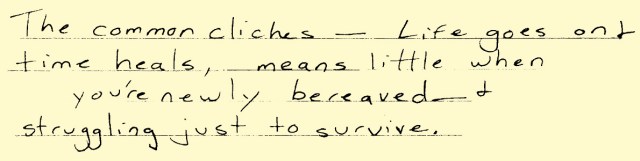 The common cliches — Life goes on &
time heals, means little when
you're newly bereaved — &
struggling just to survive.